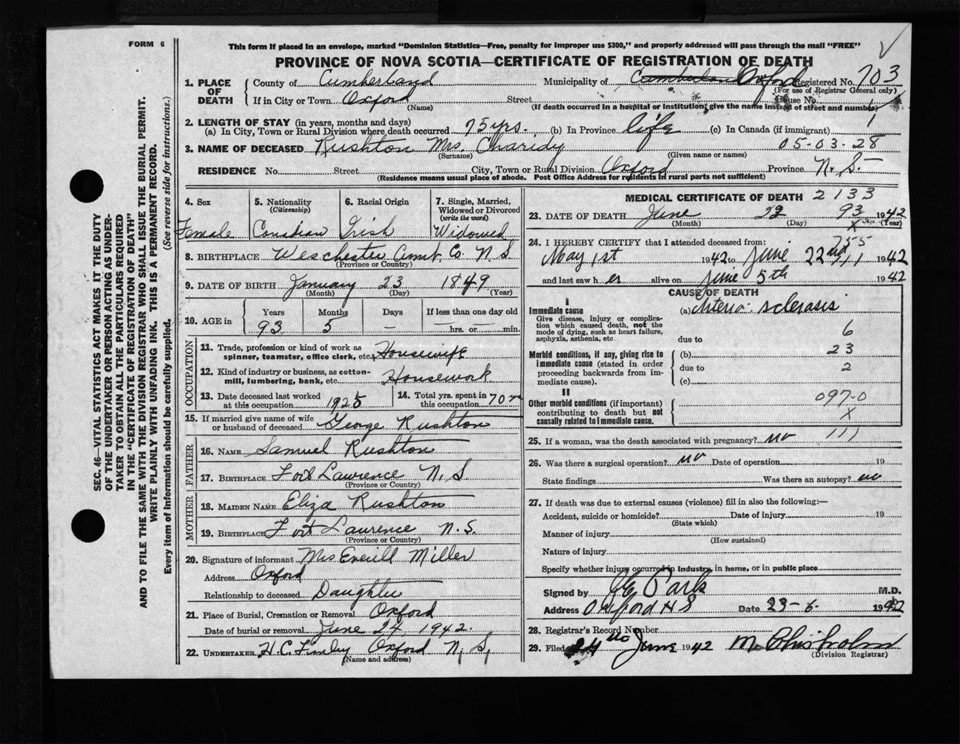 FORM 6
This form if placed in an envelope, marked "Dominion Statistics—Free, penalty for improper use $300," and properly addressed will pass through the mail "FREE"
PROVINCE OF NOVA SCOTIA—CERTIFICATE OF REGISTRATION OF DEATH
SEC. 46—VITAL STATISTICS ACT MAKES IT THE DUTY
OF THE UNDERTAKER OR PERSON ACTING AS UNDER-
TAKER TO OBTAIN ALL THE PARTICULARS REQUIRED
IN THE "CERTIFICATE OF REGISTRATION OF DEATH"
AND TO FILE THE SAME WITH THE DIVISION REGISTRAR WHO SHALL ISSUE THE BURIAL PERMIT.
WRITE PLAINLY WITH UNFADING INK. THIS IS A PERMANENT RECORD.
Every item of information should be carefully supplied. (See reverse side for instructions.)
1. PLACE OF DEATH County of Cumberland Municipality of Oxford Registered No. 703
(For use of Registrar General only)
If in City or Town Oxford Street House No.
(Name) (If death occurred in a hospital or institution, give the name instead of street and number) 1
2. LENGTH OF STAY (in years, months and days)
(a) In City, Town or Rural Division where death occurred 75 yrs. (b) In Province life (c) In Canada (if immigrant)
3. NAME OF DECEASED Rushton Mrs. Charidy 05-03-28
(Surname) (Given name or names)
RESIDENCE No. Street City, Town or Rural Division Oxford Province N.S.
(Residence means usual place of abode. Post Office Address for residents in rural parts not sufficient)
4. Sex Female
5. Nationality (Citizenship) Canadian
6. Racial Origin Irish
7. Single, Married, Widowed or Divorced (write the word) Widowed
8. BIRTHPLACE Weschester Co. N S
(Province or Country)
9. DATE OF BIRTH January 23 1849
(Month) (Day) (Year)
10. AGE in Years 93 Months 5 Days — If less than one day old hrs. or min.
OCCUPATION
11. Trade, profession or kind of work as spinner, teamster, office clerk, etc. Housewife
12. Kind of industry or business, as cotton-mill, lumbering, bank, etc. Housework
13. Date deceased last worked at this occupation 1925
14. Total yrs. spent in this occupation 70
15. If married give name of wife or husband of deceased George Rushton
FATHER
16. NAME Samuel Rushton
17. BIRTHPLACE Fort Lawrence N.S
(Province or Country)
MOTHER
18. MAIDEN NAME Eliza Rushton
19. BIRTHPLACE Fort Laurence N.S.
(Province or Country)
20. Signature of informant Mrs Everill Miller
Address Oxford
Relationship to deceased Daughter
21. Place of Burial, Cremation or Removal Oxford
Date of burial or removal June 24 1942.
22. UNDERTAKER H.C. Finley Oxford N.S,
(Name and address)
MEDICAL CERTIFICATE OF DEATH 2133
23. DATE OF DEATH June 22 93 1942
(Month) (Day) X (Year)
24. I HEREBY CERTIFY that I attended deceased from: 755
May 1st 1942 to June 22nd 1942
and last saw her alive on June 5th 1942
CAUSE OF DEATH
I
Immediate cause (a) Arterio-sclerosis
Give disease, injury or complication which caused death, not the mode of dying, such as heart failure, asphyxia, asthenia, etc
due to 6
Morbid conditions, if any, giving rise to immediate cause (stated in order proceeding backwards from immediate cause).
(b) 23
due to 2
(c)
II
Other morbid conditions (if important) contributing to death but not causally related to immediate cause.
097-0
X
25. If a woman, was the death associated with pregnancy? no 111
26. Was there a surgical operation? no Date of operation 19
State findings Was there an autopsy? no
27. If death was due to external causes (violence) fill in also the following:—
Accident, suicide or homicide? Date of injury 19
(State which)
Manner of injury
(How sustained)
Nature of injury
Specify whether injury occurred in industry, in home, or in public place
Signed by Park M.D.
Address Oxford N S Date 23-6. 1942
28. Registrar's Record Number
29. Filed 24 June 1942 M. Chisholm
(Division Registrar)